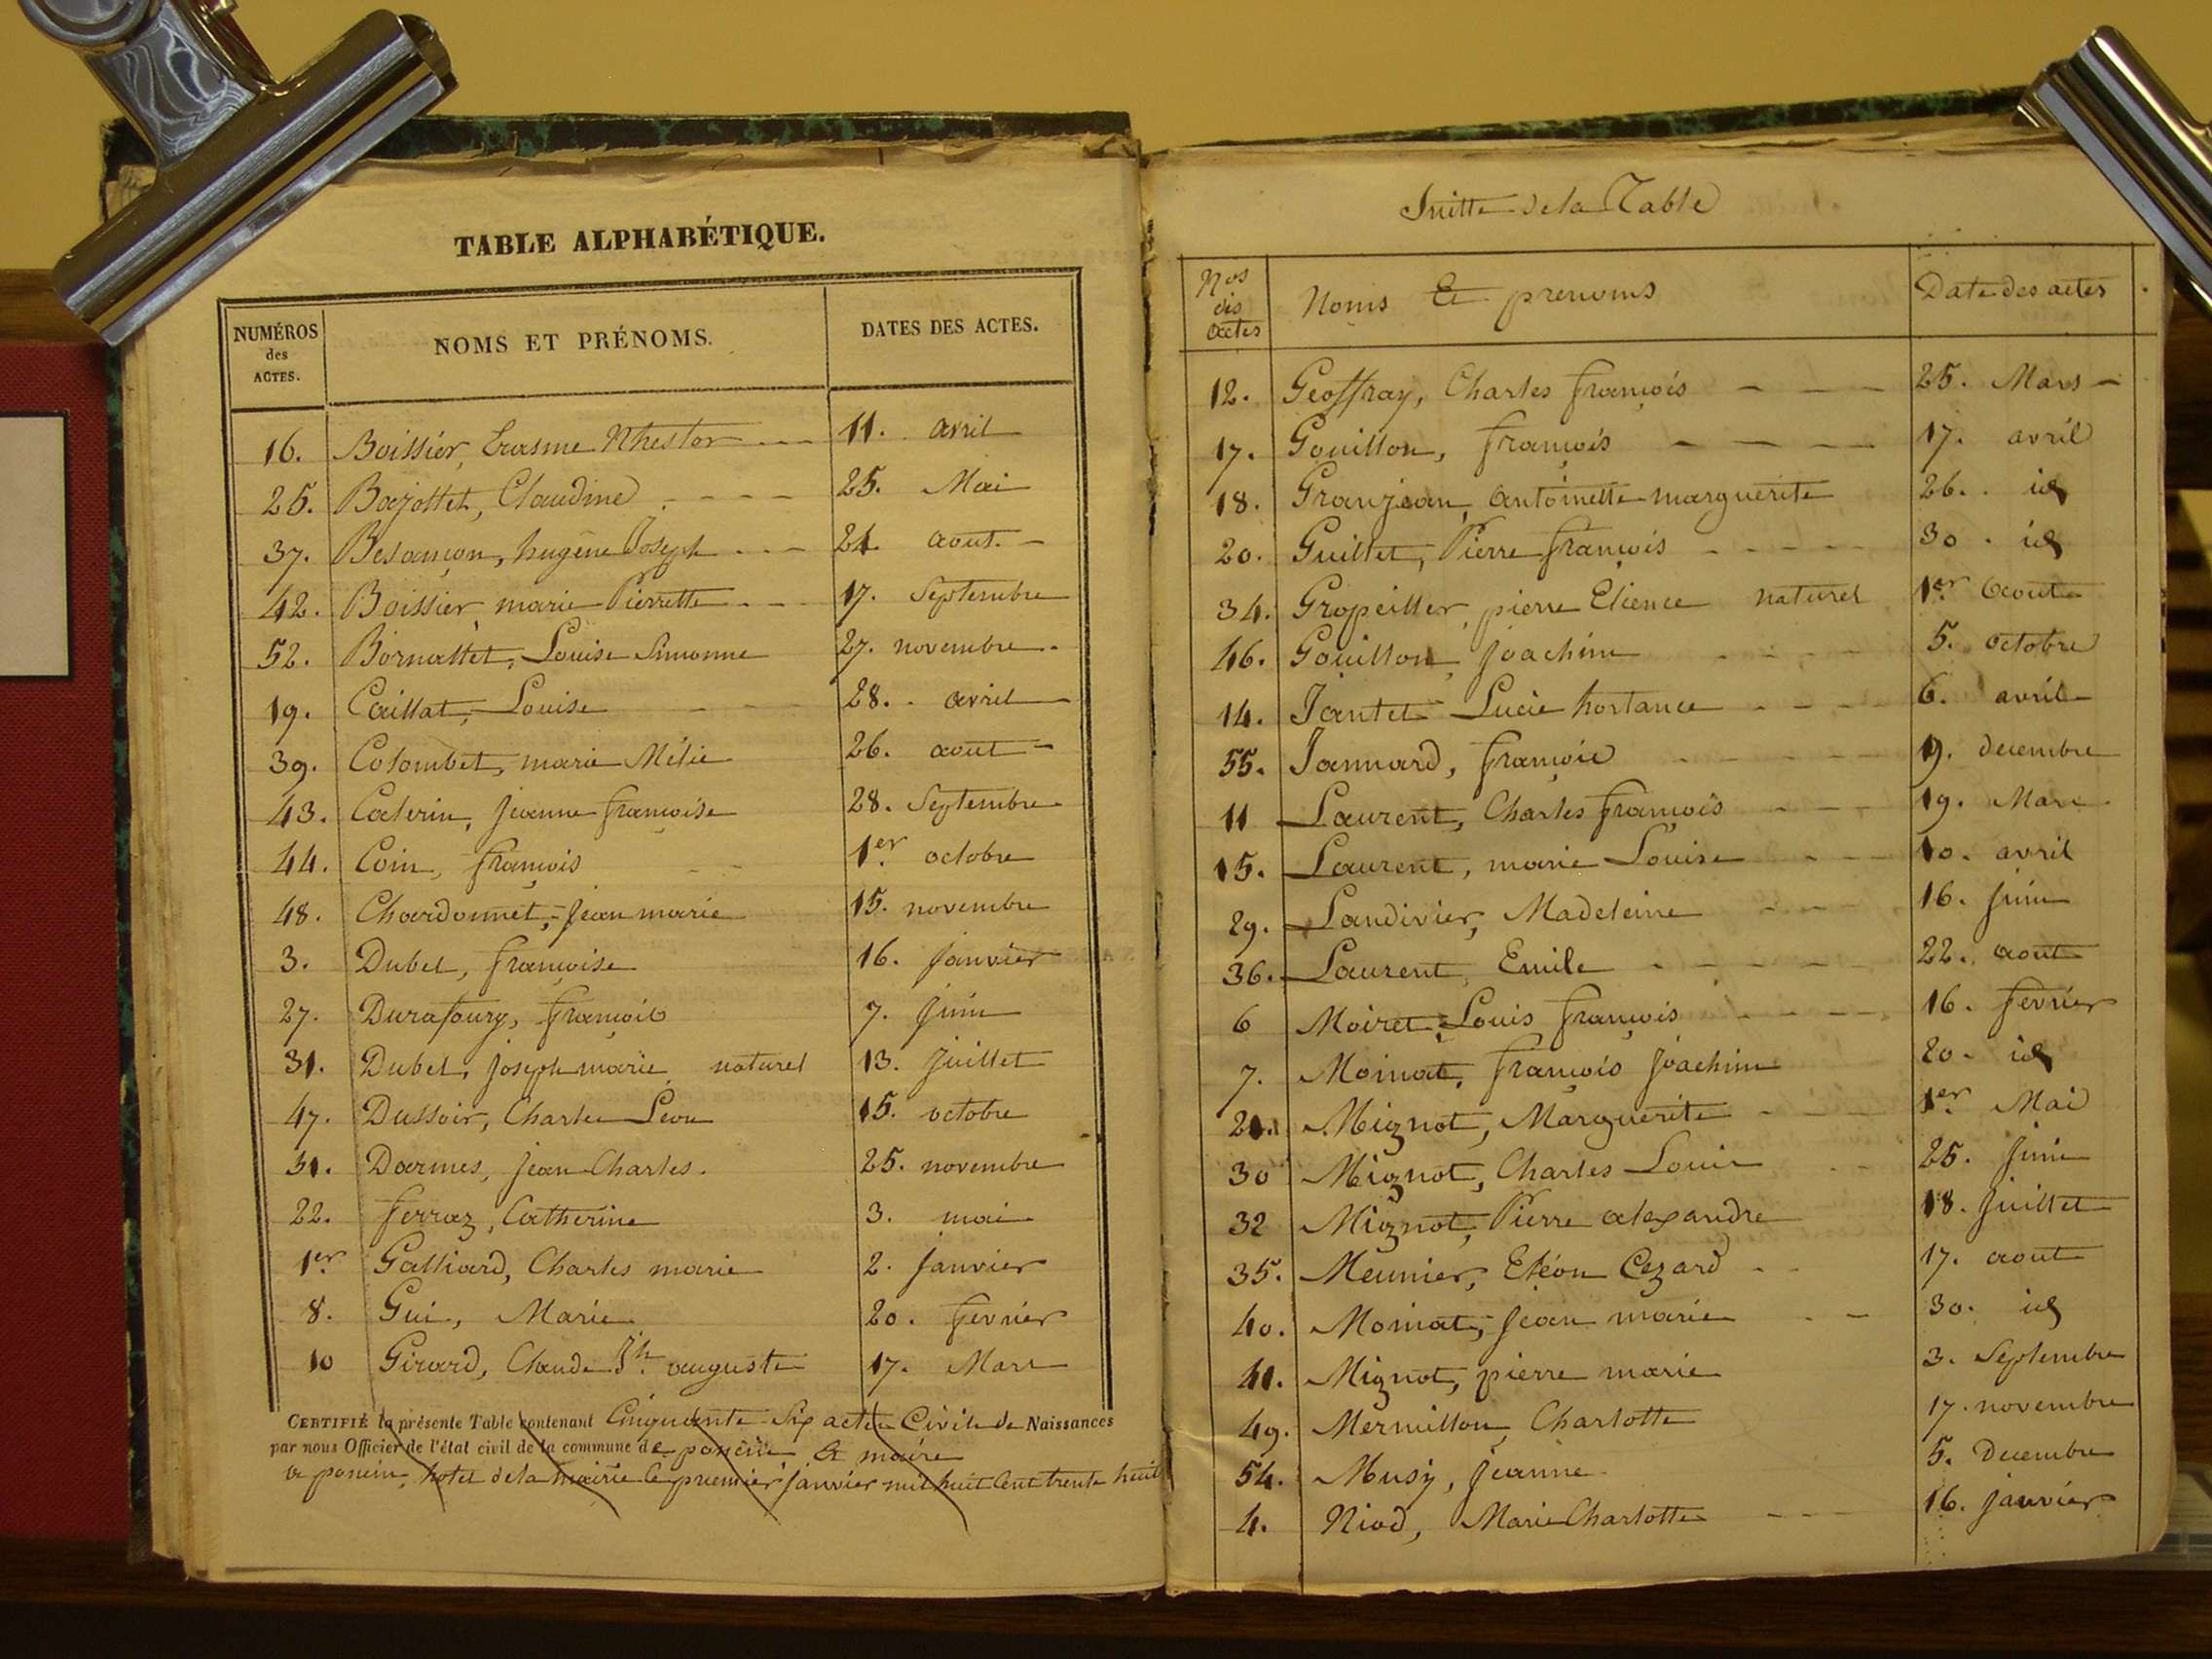 TABLE ALPHABÉTIQUE.
NUMÉROS
des
ACTES.
NOMS ET PRÉNOMS.
DATES DES ACTES.
16. Boissier, Erasme Nhestor 11. avril
25. Bajollet, Claudine 25. Mai
37. Besançon, hugène Joseph 21. aout.
42. Boissier marie Pierrette 17. Septembre
52. Bornattet, Louise Simonne 27. novembre.
19. Caillat, Louise 28. avril
39. Colombet, marie Mélie 26. aout
43. Caterin, jeanne françoise 28. Septembre
44. Coin, françois 1er octobre
48. Chardonnet, jean marie 15. novembre
3. Dubet, françoise 16. janvier
27. Durafoury, françois 7. juin
31. Dubet, joseph marie naturel 13. juillet
47. Dussoir, Charles Léon 15. octobre
51. Darmes, jean Charles. 25. novembre
22. ferraz, Catherine 3. mai
1er Galliard, Charles marie 2. janvier
8. Gui, Marie 20. fevrier
10 Girard, Claude Jh. auguste 17. Mars
CERTIFIÉ la présente Table contenant Cinquante Six actes Civile de Naissances
par nous Officier de l'état civil de la commune de poncin et maire
a poncin, hotel de la mairie le premier janvier mil huit Cent trente huit
Suitte de la Table
Nos
des
actes
Noms Et prenoms
Date des actes
12. Geoffray, Charles françois 25. Mars
17. Gouillon, françois 17. avril
18. Granjean, antoinette marguerite 26. id
20. Guillet, Pierre françois 30. id
34. Gropeiller, pierre Etienne naturel 1er. aout
46. Gouillon, joachim 5. octobre
14. Jantet Lucie hortance 6. avril
55. Jannard, françois 9. decembre
11 Laurent, Charles françois 19. Mars
15. Laurent, marie Louise 10. avril
29. Landivier, Madeleine 16. juin
36. Laurent, Emile 22. aout
6 Moiret, Louis françois 16. fevrier
7. Moinat, françois joachim 20. id
21. Mignot, Marguerite 1er Mai
30 Mignot, Charles Louis 25. juin
32 Mignot, Pierre alexandre 18. juillet
35. Meunier, Eléon Cezard 17. aout
40. Moinat, jean marie 30. id
41. Mignot, pierre marie 3. Septembre
49. Mermillon, Charlotte 17. novembre
54. Musy, jeanne 5. Decembre
4. Niod, Marie Charlotte 16. janvier